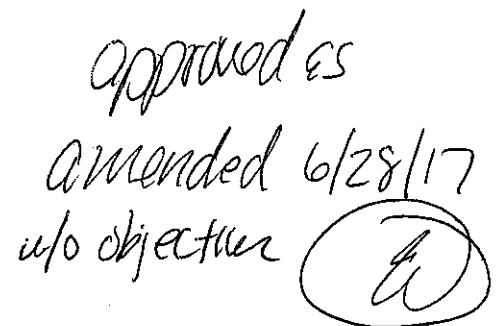 approved as
amended 6/28/17
w/o objection